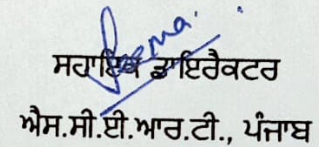 ਸਹਾਇਕ ਡਾਇਰੈਕਟਰ
ਐਸ.ਸੀ.ਈ.ਆਰ.ਟੀ., ਪੰਜਾਬ